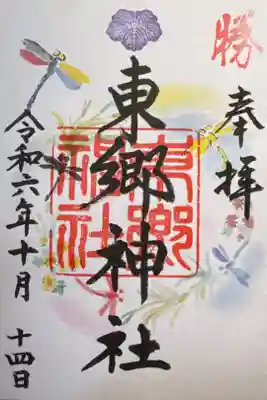 勝
奉拝
東郷神社
東郷神社
令和六年十月
十四日